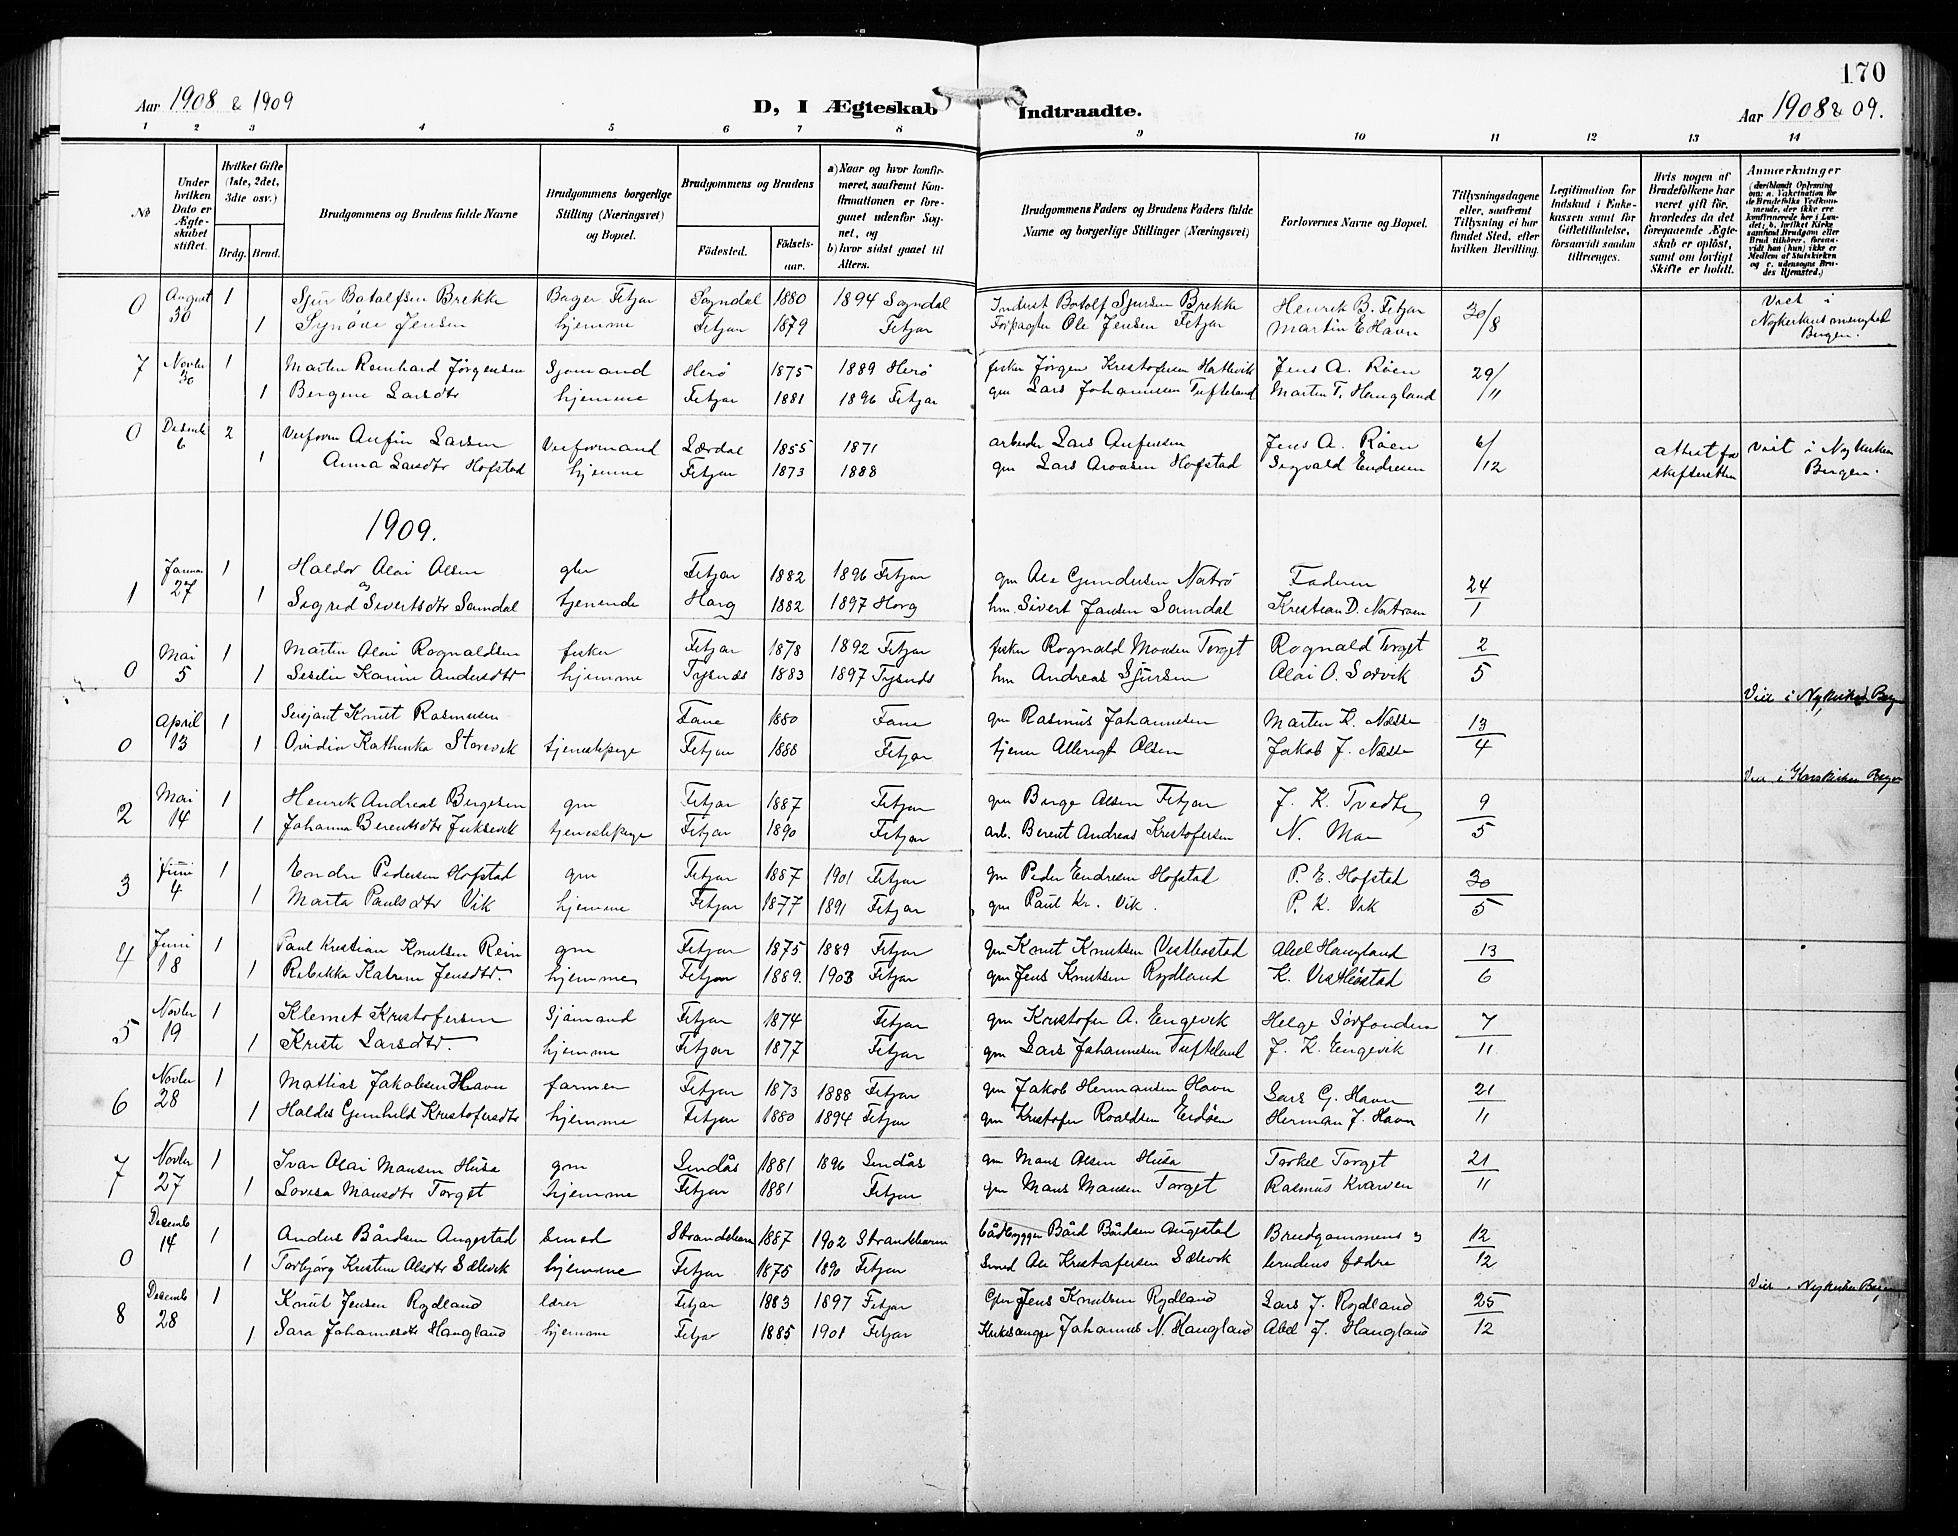 170
Aar 1908 & 1909
D, I Ægteskab Indtraadte.
Aar 1908 & 09.
1 2 3 4 5 6 7 8 9 10 11 12 13 14
No
Under hvilken Dato er Ægteskabet stiftet.
Hvilket Gifte (1ste, 2det, 3dte osv.)
Brdg. Brud.
Brudgommens og Brudens fulde Navne
Brudgommens borgerlige Stilling (Næringsvei) og Bopæl.
Brudgommens og Brudens
Födested. Födselsaar.
a) Naar og hvor konfirmeret, saafremt Konfirmationen er foregaaet udenfor Sognet, og
b) hvor sidst gaaet til Alters.
Brudgommens Faders og Brudens Faders fulde Navne og borgerlige Stillinger (Næringsvei)
Forlovernes Navne og Bopæl.
Tillysningsdagene eller, saafremt Tillysning ei har fundet Sted, efter hvilken Bevilling.
Legitimation for Indskud i Enkekassen samt for Giftetilladelse, forsaavidt saadan tiltrænges.
Hvis nogen af Brudefolkene har været gift för, hvorledes da det foregaaende Ægteskab er oplöst, samt om lovligt Skifte er holdt.
Anmærkninger
(deriblandt Oplysning om: a. Vakcination for de Brudefolks Vedkommende, der ikke ere konfirmerede her i Landet; b. hvilket Kirkesamfund Brudgom eller Brud tilhörer, forsaavidt han (hun) ikke er Medlem af Statskirken og c. udensogns Brudes Hjemsted.)
0 August 30 1 Sjur Botolfsen Brekke Bager Fitjar Sogndal 1880 1894 Sogndal Indust Botolf Sjursen Brekke Henrik B. Fitjar 30/8 Viet i
1 Synöve Jensen hjemme Fitjar 1879 Fitjar Forpagter Ole Jensen Fitjar Martin E Havn Nykirkens menighed Bergen.
7 Novbr 30 1 Marten Reinhard Jörgensen Sjömand Herö 1875 1889 Herö fisker Jörgen Kristofersen Hattevik Jens A. Röen 29/11
1 Bergine Larsdtr hjemme Fitjar 1881 1896 Fitjar gm Lars Johannesen Tufteland Marten T. Haugland
0 Desemb 6 2 Verform Anfin Larsen Verkformand Lærdal 1855 1871 arbeider Lars Anfinsen Jens A. Röen 6/12 attest fra viet i Nykirken
1 Anna Larsdtr Hofstad hjemme Fitjar 1873 1888 gm Lars Aroasen Hofstad Sigvald Endresen skifteretten Bergen.
1909.
1 Januar 27 1 Haldor Olai Olsen gbr Fitjar 1882 1896 Fitjar gm Ole Gundersen Natrö Faderen 24/1
1 og Sigrid Sivertsdtr Samdal tjenende Horg 1882 1897 Horg hm Sivert Jansen Samdal Kristian D. Nortraen
0 Mai 5 1 Martin Olai Rognaldsen fisker Fitjar 1878 1892 Fitjar fisker Rognald Monsen Torget Rognald Torget 2/5
1 Sesilie Karine Andersdtr hjemme Tysnes 1883 1897 Tysnes hm Andreas Sjursen Olai O. Sörvik
Viet i Nykirken Berg
0 April 13 1 Serjant Knut Rasmusen Fane 1880 Fane gm Rasmus Johannesen Marten K. Næsse 13/4
1 Ovidia Kathinka Storevik tjenestepige Fitjar 1888 Fitjar tjener Allerigt Olsen Jakob J. Næsse
Viet i Korskirken Bergen
2 Mai 14 1 Henrik Andreas Bergesen gm Fitjar 1887 Fitjar gm Berge Olsen Fitjar J. K. Tvedte 9/5
1 Johanna Berentsdtr Juksevik tjenestepige Fitjar 1890 Fitjar arb. Berent Andreas Kristofersen N. Moe
3 Juni 4 1 Endre Pedersen Hofstad gm Fitjar 1887 1901 Fitjar gm Peder Endresen Hofstad P. E. Hofstad 30/5
1 Marta Paulsdtr Vik hjemme Fitjar 1877 1891 Fitjar gm Paul Kr. Vik. P. K. Vik
4 Juni 18 1 Paul Kristian Knutsen Rein gm Fitjar 1875 1889 Fitjar gm Knut Knutsen Vestbostad Abel Haugland 13/6
1 Rebekka Katrine Jensdtr. hjemme Fitjar 1889. 1903 Fitjar gm Jens Knutsen Rydland K. Vestbostad
5 Novbr 19 1 Klemet Kristofersen Sjömand Fitjar 1874 Fitjar gm Kristofer A. Engevik Helge Sörfonden 7/11
1 Kristi Larsdtr. hjemme Fitjar 1877 Fitjar gm Lars Johannesen Tufteland J. K. Engevik
6 Novbr 28 1 Mathias Jakobsen Havn farmer Fitjar 1873 1888 Fitjar gm Jakob Hermansen Havn Lars G. Havn 21/11
1 Haldis Gunhild Kristofersdtr hjemme Fitjar 1880 1894 Fitjar gm Kristofer Roaldsen Eidöen Herman J. Havn
7 Novbr 27 1 Ivar Olai Mansen Husa gm Lindås 1881 1896 Lindås gm Mons Olsen Husa Torkel Torget 21/11
1 Lovisa Mansdtr Torget hjemme Fitjar 1881 Fitjar gm Mans Mansen Torget Rasmus Kvarven
0 Desemb 14 1 Anders Bårdsen Augestad smed Strandebarm 1887 1902 Strandebarm båtbygger Bård Bårdsen Augestad Brudgommens og 12/12
1 Torbjörg Kristine Olsdtr Sælevik hjemme Fitjar 1875 1890 Fitjar Smed Ole Kristofersen Sælevik brudens fædre
Viet i Nykirken Bergen
8 Desemb 28 1 Knut Jensen Rydland lærer Fitjar 1883 1897 Fitjar Jens Knutsen Rydland Lars J. Rydland 25/12
1 Sara Johannesdtr Haugland hjemme Fitjar 1885 1901 Fitjar Kirkesanger Johannes N. Haugland Abel J. Haugland